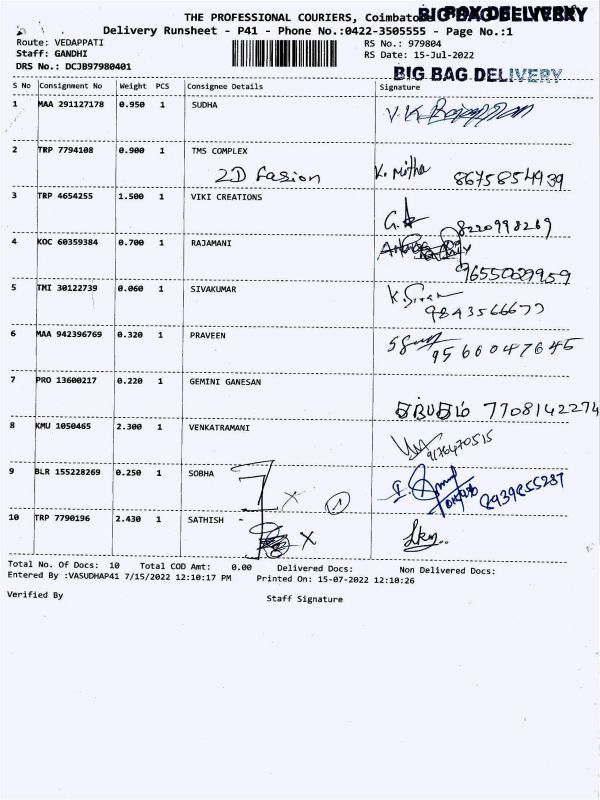 THE PROFESSIONAL COURIERS, Coimbatore
Delivery Runsheet - P41 - Phone No.:0422-3505555 - Page No.:1
Route: VEDAPPATI
RS No.: 979804
Staff: GANDHI
RS Date: 15-Jul-2022
DRS No.: DCJB97980401
BIG BAG DELIVERY
S No Consignment No Weight PCS Consignee Details Signature
1 MAA 291127178 0.950 1 SUDHA
2 TRP 7794108 0.900 1 TMS COMPLEX
2D fasion K. Mitha 8675854939
3 TRP 4654255 1.500 1 VIKI CREATIONS
8220998269
4 KOC 60359384 0.700 1 RAJAMANI
9655029959
5 TMI 30122739 0.060 1 SIVAKUMAR
9843566677
6 MAA 942396769 0.320 1 PRAVEEN
9566047645
7 PRO 13600217 0.220 1 GEMINI GANESAN
7708142274
8 KMU 1050465 2.300 1 VENKATRAMANI
9176470515
9 BLR 155228269 0.250 1 SOBHA
7 X 1 8939855287
10 TRP 7790196 2.430 1 SATHISH -
X
Total No. Of Docs: 10 Total COD Amt: 0.00 Delivered Docs: Non Delivered Docs:
Entered By :VASUDHAP41 7/15/2022 12:10:17 PM Printed On: 15-07-2022 12:10:26
Verified By
Staff Signature